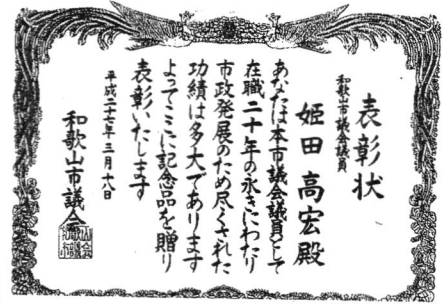 表彰状
和歌山市議会議員
姫田高宏殿
あなたは本市議会議員として
在職二十年の永きにわたり
市政発展のため尽くされた
功績は多大であります
よってここに記念品を贈り
表彰いたします
平成二十七年三月十八日
和歌山市議会